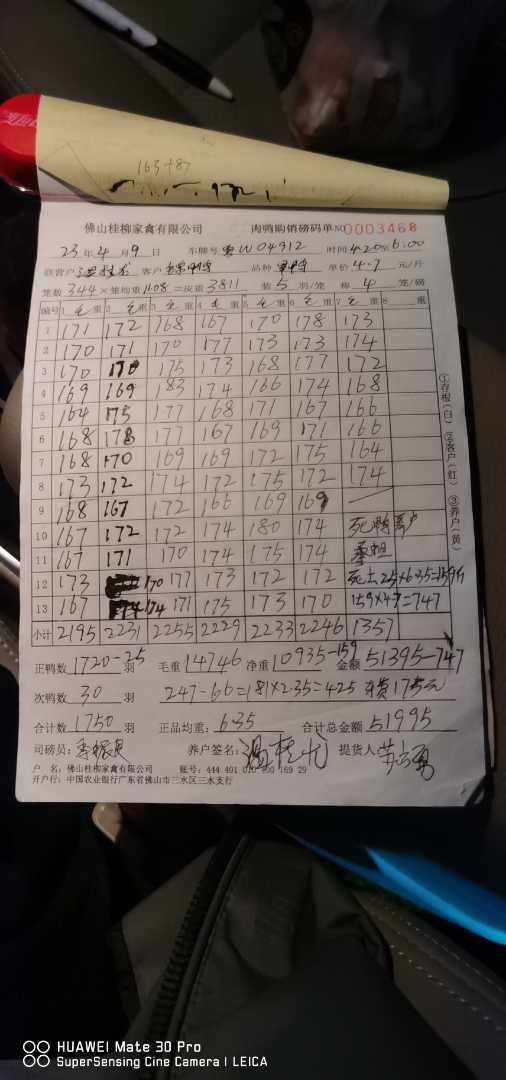 163+87
佛山桂柳家禽有限公司 肉鸭购销磅码单 NO 0003468
23年4月9日 车牌号 粤W04912 时间 4.20至6:00
联营户 客户 品种 单价 4.7 元/斤
笼数 344×笼均重 11.08=皮重 3811 装 5 羽/笼 称 4 笼/磅
编号 1 毛重 2 毛重 3 毛重 4 毛重 5 毛重 6 毛重 7 毛重 8 重
1 171 172 168 167 170 178 173
2 170 171 170 177 173 173 174
3 170 170 175 173 168 177 172
4 169 169 183 174 166 174 168
5 164 175 177 168 171 167 166
6 168 178 177 167 169 171 166
7 168 170 169 169 172 175 164
8 173 172 174 172 175 172 174
9 168 167 172 166 169 169 —
10 167 172 172 174 180 174 死鸭客户
11 167 171 170 174 175 174 承担
12 173 170 177 173 172 172 死亡25×6.35=159斤
13 167 174 171 175 173 170 159×4.7=747
小计 2195 2231 2255 2229 2233 2246 1357
正鸭数 1720-25 羽 毛重 14746 净重 10935-159 金额 51395-747
次鸭数 30 羽 247-66=181×2.35=425 车费175元
合计数 1750 羽 正品均重: 6.35 合计总金额 51995
司磅员: 养户签名: 提货人
户 名: 佛山桂柳家禽有限公司 账号: 444 491 010 400 169 29
开户行: 中国农业银行广东省佛山市三水区三水支行
①存根(白) ②客户(红) ③养户(黄)
HUAWEI Mate 30 Pro
SuperSensing Cine Camera | LEICA